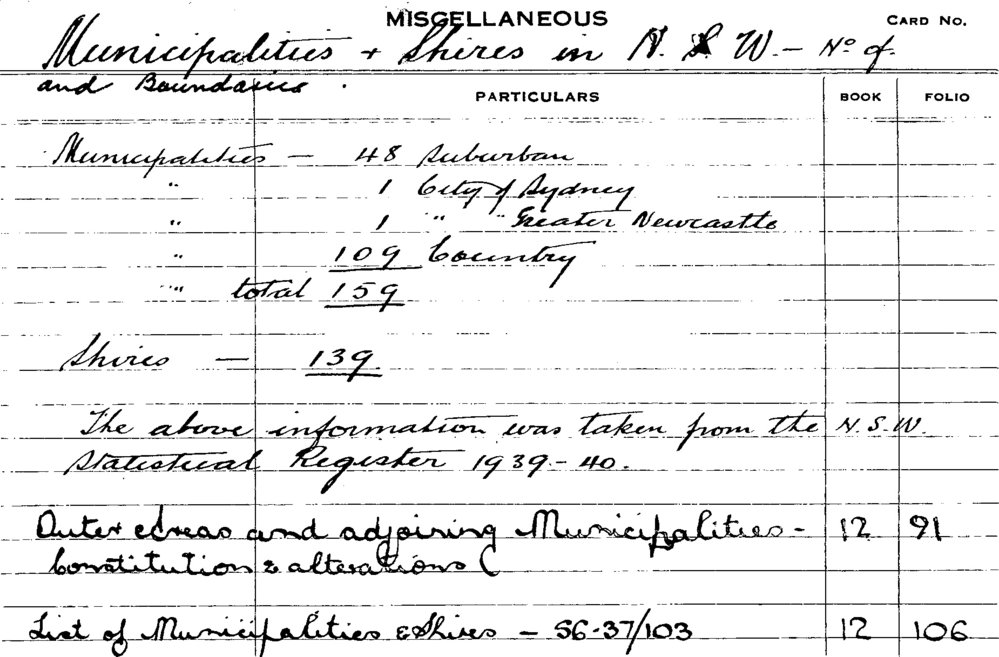 MISCELLANEOUS CARD NO.
Municipalities + Shires in N. S. W. - No of.
and Boundaries.
PARTICULARS BOOK FOLIO
Municipalities - 48 Suburban
" 1 City of Sydney
" 1 " " Greater Newcastle
" 109 Country
" total 159
Shires - 139
The above information was taken from the N.S.W.
Statistical Register 1939-40.
Outer areas and adjoining Municipalities - 12 91
Constitution & alterations (
List of Municipalities & Shires - 56-37/103 12 106